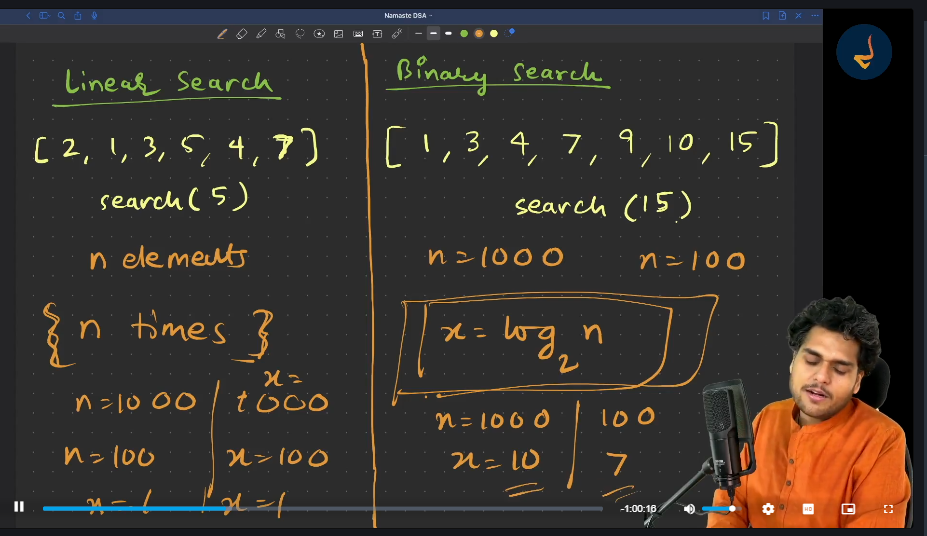 Namaste DSA
Linear Search
[2, 1, 3, 5, 4, 7]
search(5)
n elements
{n times}
x=
n=1000 | 1000
n=100 | x=100
n=1 | x=1
Binary Search
[1, 3, 4, 7, 9, 10, 15]
search (15)
n=1000 n=100
x = log₂ n
n=1000 | 100
x=10 | 7
-1:00:16
HD